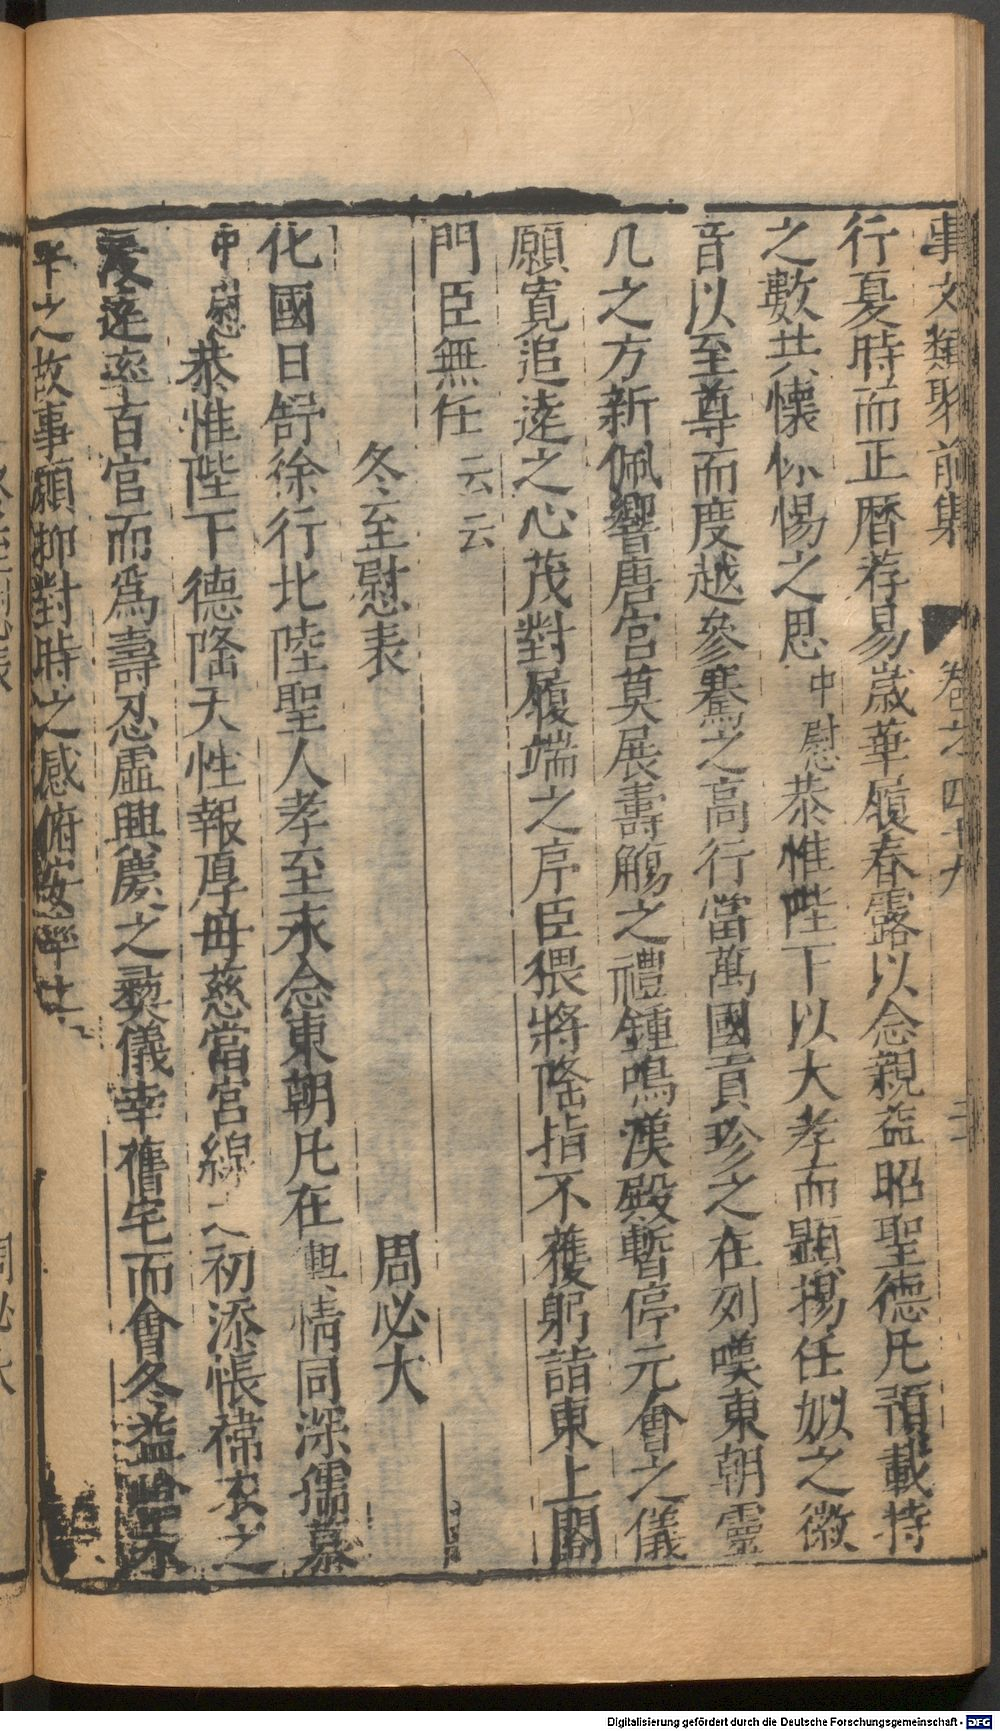 事文類聚前集　卷之四十九　三
行夏時而正曆荐易歲華履春露以念親益昭聖德凡預載持
之數共懷怵惕之思中慰恭惟陛下以大孝而顯揚任姒之徽
音以至尊而度越參騫之高行當萬國貢珍之在列嘆東朝靈
几之方新佩響唐宮莫展壽觴之禮鍾鳴漢殿暫停元會之儀
願寬追遠之心茂對履端之序臣猥將隆指不獲躬詣東上閤
門臣無任云云
冬至慰表　周必大
化國日舒徐行北陸聖人孝至永念東朝凡在輯情同深孺慕
中慰恭惟陛下德隆天性報厚母慈當宮線之初添悵褘衣之
遠率百官而爲壽忍虛興慶之彞儀幸舊宅而會冬益
年之故事願抑對時之感俯安率土
Digitalisierung gefördert durch die Deutsche Forschungsgemeinschaft - DFG